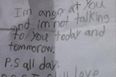 I'm angr at You
and im not talking
to you today and
tommorow.
P.S all day.